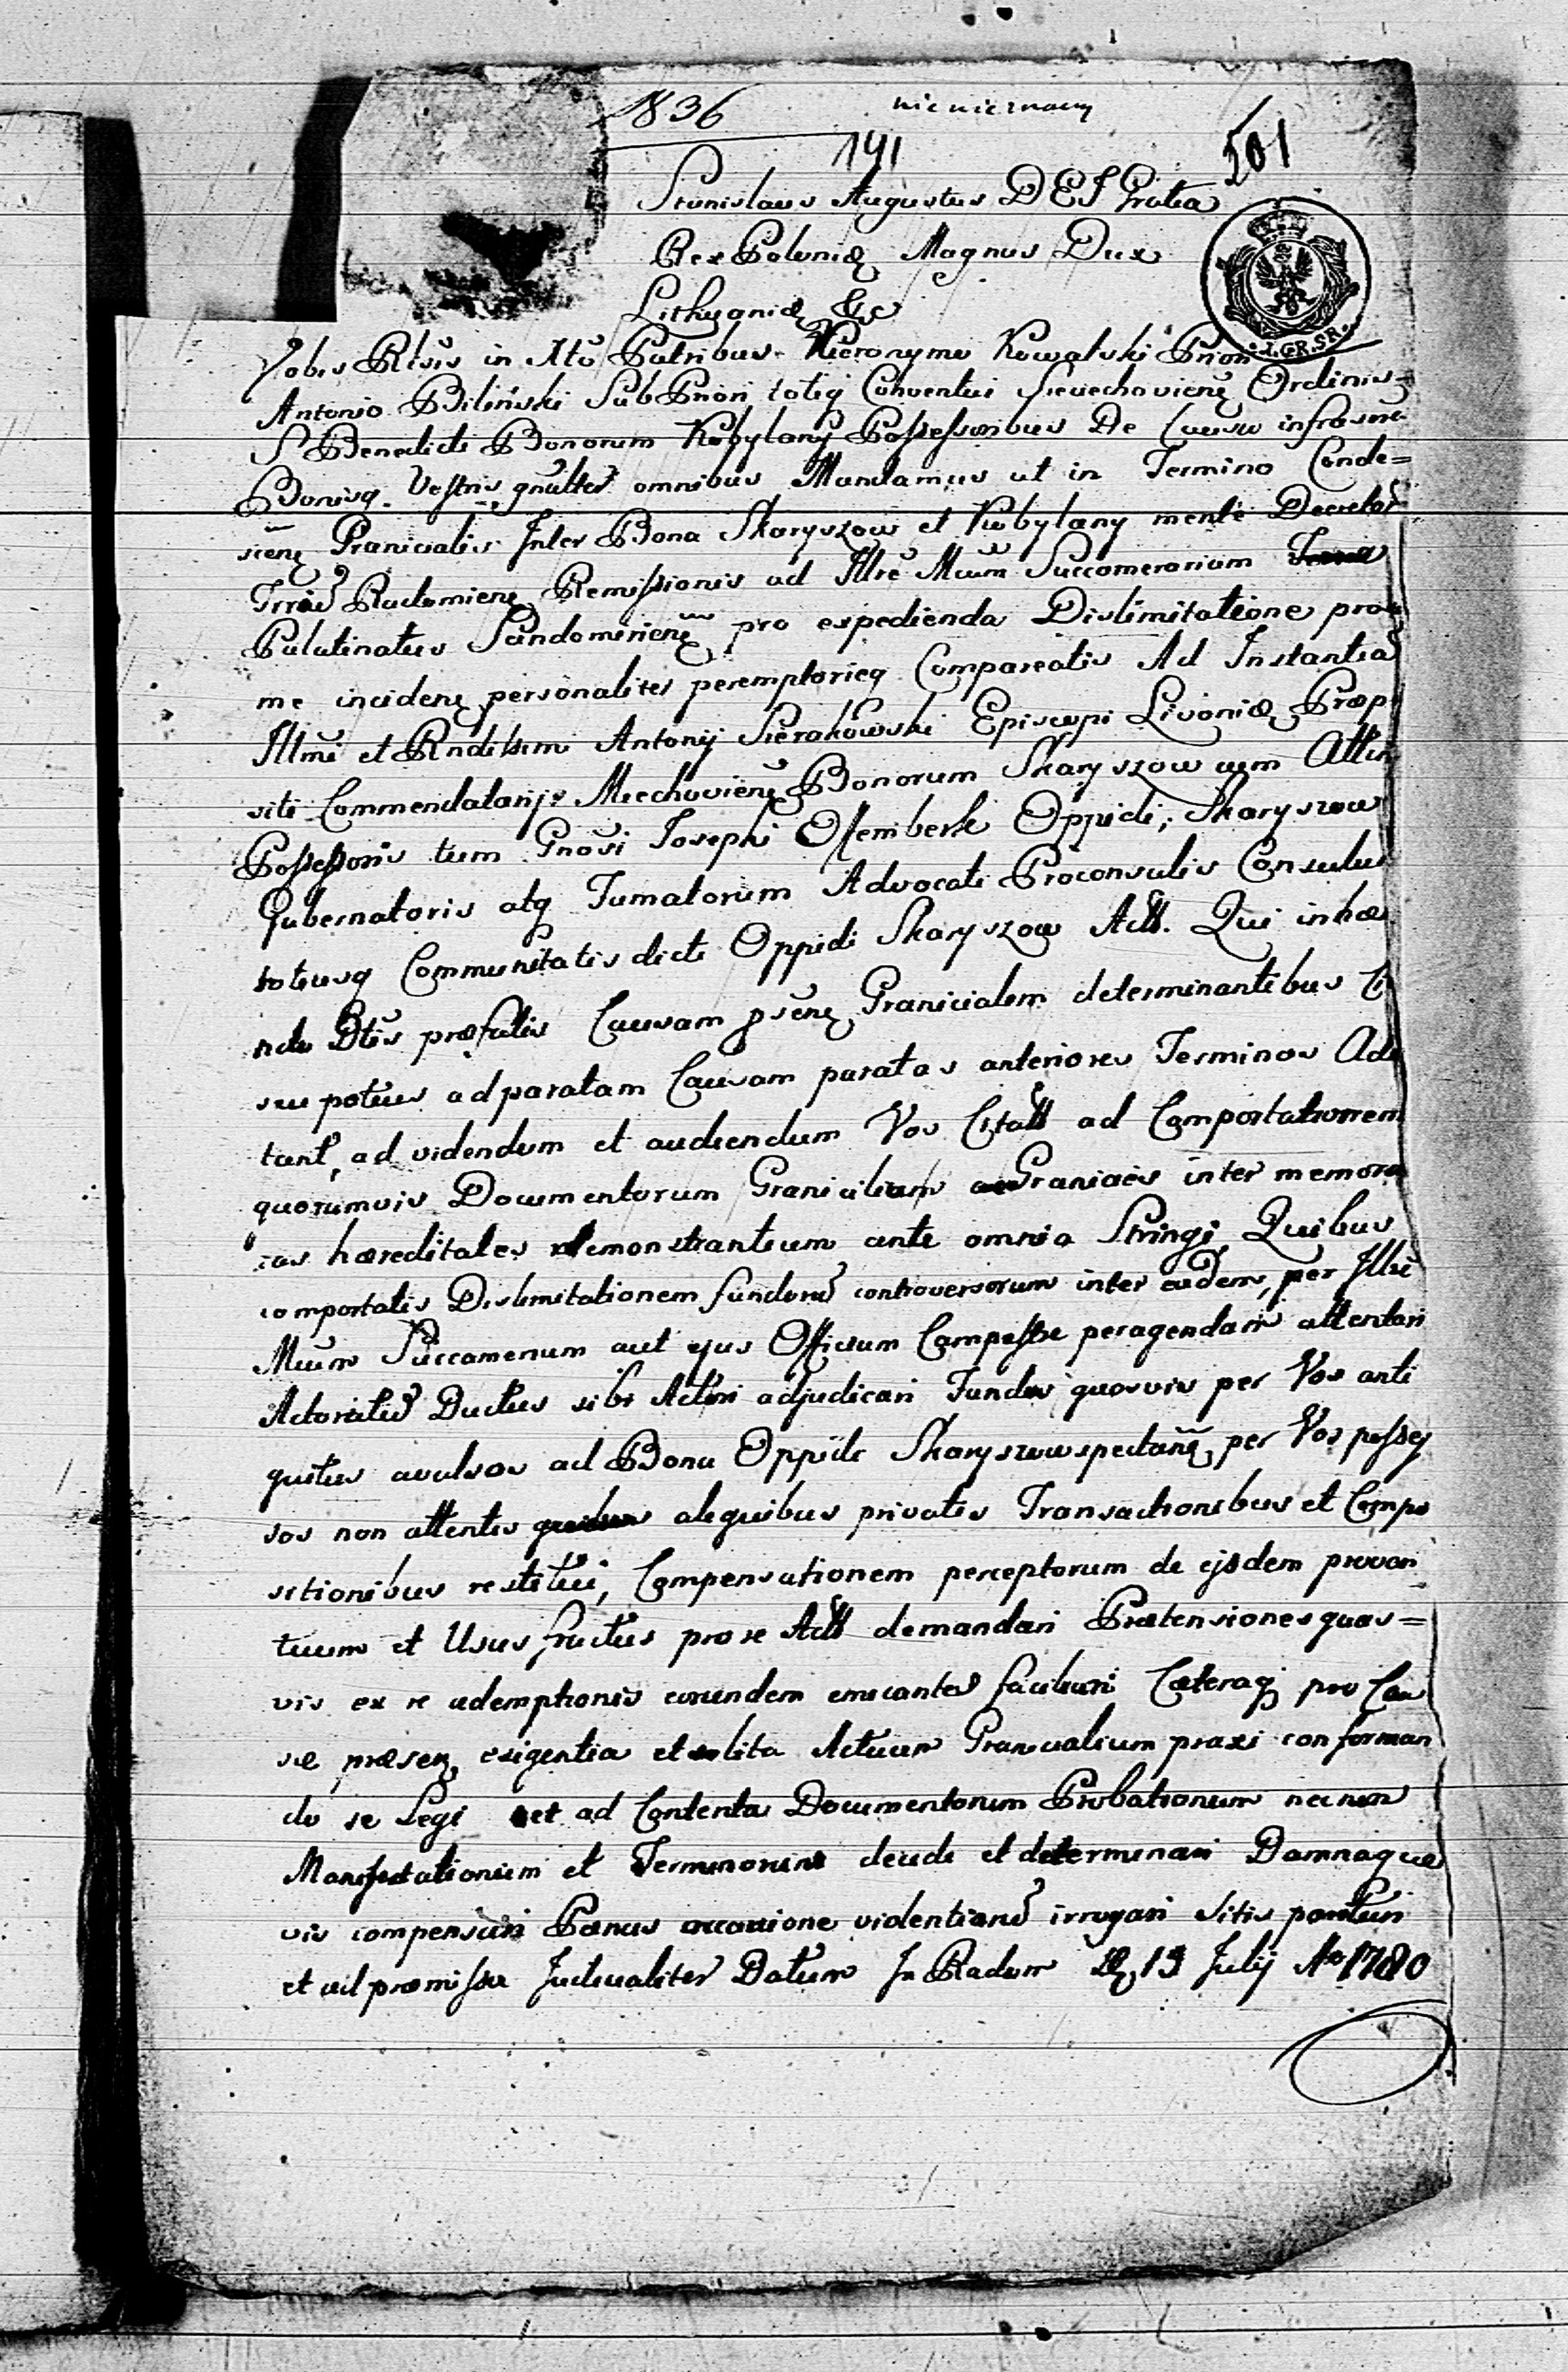 1836
nie nieznany
141
501
Stanislaus Augustus DEI Gratia
Rex Poloniæ Magnus Dux
Lithuaniæ &c
I.GR.SR.
Vobis Rlsis in Xto Patribus Hieronymo Kowalski Priori
Antonio Biliński SubPriori totiq Conventui Sieciechoviens Ordinis
S Benedicti Bonorum Kobylany Possessoribus De Causa infrascrip
Bonisq. Vestris gnalter omnibus Mandamus ut in Termino Conde=
scens Granicialis Inter Bona Skaryszow et Kobylany mente Decretor
Trris Radomiens Remissionis ad Illre Mcum Succamerarium
Palatinatus Sandomiriens pro expedienda Dislimitatione proxi
me inciden personaliter peremptorieq Compareatis Ad Instantiã
Illmi et Rndissimi Antonij Sierakowski Episcopi Livoniæ Præpo
siti Commendatarij Miechoviens Bonorum Skaryszow cum Attin
Possessoris tum Gnosi Josephi Ossemberk Oppidi Skaryszow
Gubernatoris atq Famatorum Advocati Proconsulis Consulum
totiusq Communitatis dicti Oppidi Skaryszow Actt. Qui inhæ
ndo Dtis præfatis Causam psens Granicialem determinantibus Ci
seu potius ad paratam Causam paratas anteriores Terminos Adci
tant, ad videndum et audiendum Vos Citatt ad Comportationem
quorumvis Documentorum Granicilium Granicies inter memora
tas hæreditates demonstrantium ante omnia Stringi Quibus
comportatis Dislimitationem fundorũ controversorum inter eadem, per Illre
Mcum Succamerium aut ejus Officium Campestre peragendam attentari
Actoratus Ductus sibi Actori adjudicari Fundos quosvis per Vos anti
quitus avulsos ad Bona Oppidi Skaryszow spectans per Vos posses
sos non attentis aliquibus privatis Transactionibus et Compo
sitionibus restitui, Compensationem perceptorum de ijsdem proven
tuum et Usus fructus pro re Actt demandari Prætensiones quas=
vis ex re ademptionis eorundem emicantes facilitari Cæteraq pro Cau
sæ præsen exigentia et solita Actuum Granicialium praxi conforman
do se Legi et ad Contenta Documentorum Probationum necnon
Manifestationum et Terminorum decidi et determinari Damnaque
vis compensari Pœnas occasione violentiarũ irrogari Sitis parituri
et ad præmissa Judicialiter Datum In Radom D 13 Julij Ao 1780